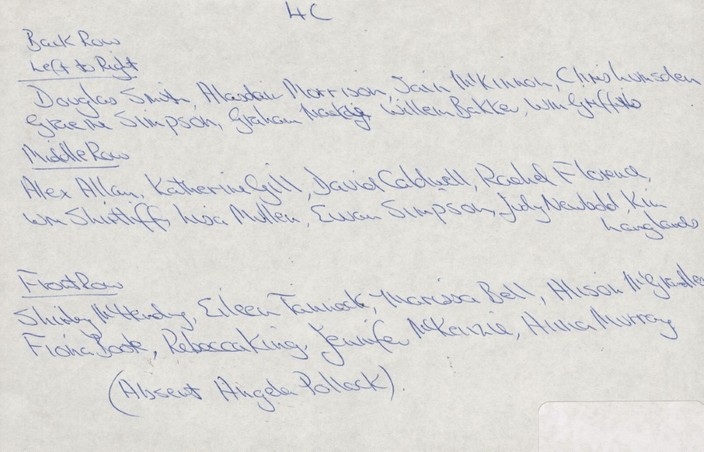 4C
Back Row
Left to Right
Douglas Smith, Alasdair Morrison, Iain McKinnon, Chris Lumsden
Graeme Simpson, Graham Willem Bakker, Wm Griffiths
Middle Row
Alex Allan, Katherine Gill, David Caldwell, Rachel Florence,
Wm Shirtliff, Lisa Mullen, Ewan Simpson, Judy Newbold, Kim
Langlands
Front Row
Shirley McHendry, Eileen Tannock, Marissa Bell, Alison
Fiona Book, Rebecca King, Jennifer McKenzie, Anna Murray
(Absent Angela Pollock)